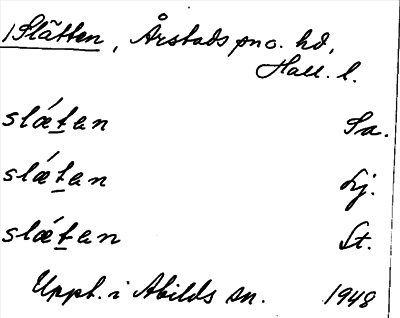 1Slätten, Årstads sn o. hd,
Hall. l.
slǽtan Sa.
slǽtan Lj.
slǽtan St.
Uppt. i Abilds sn. 1948